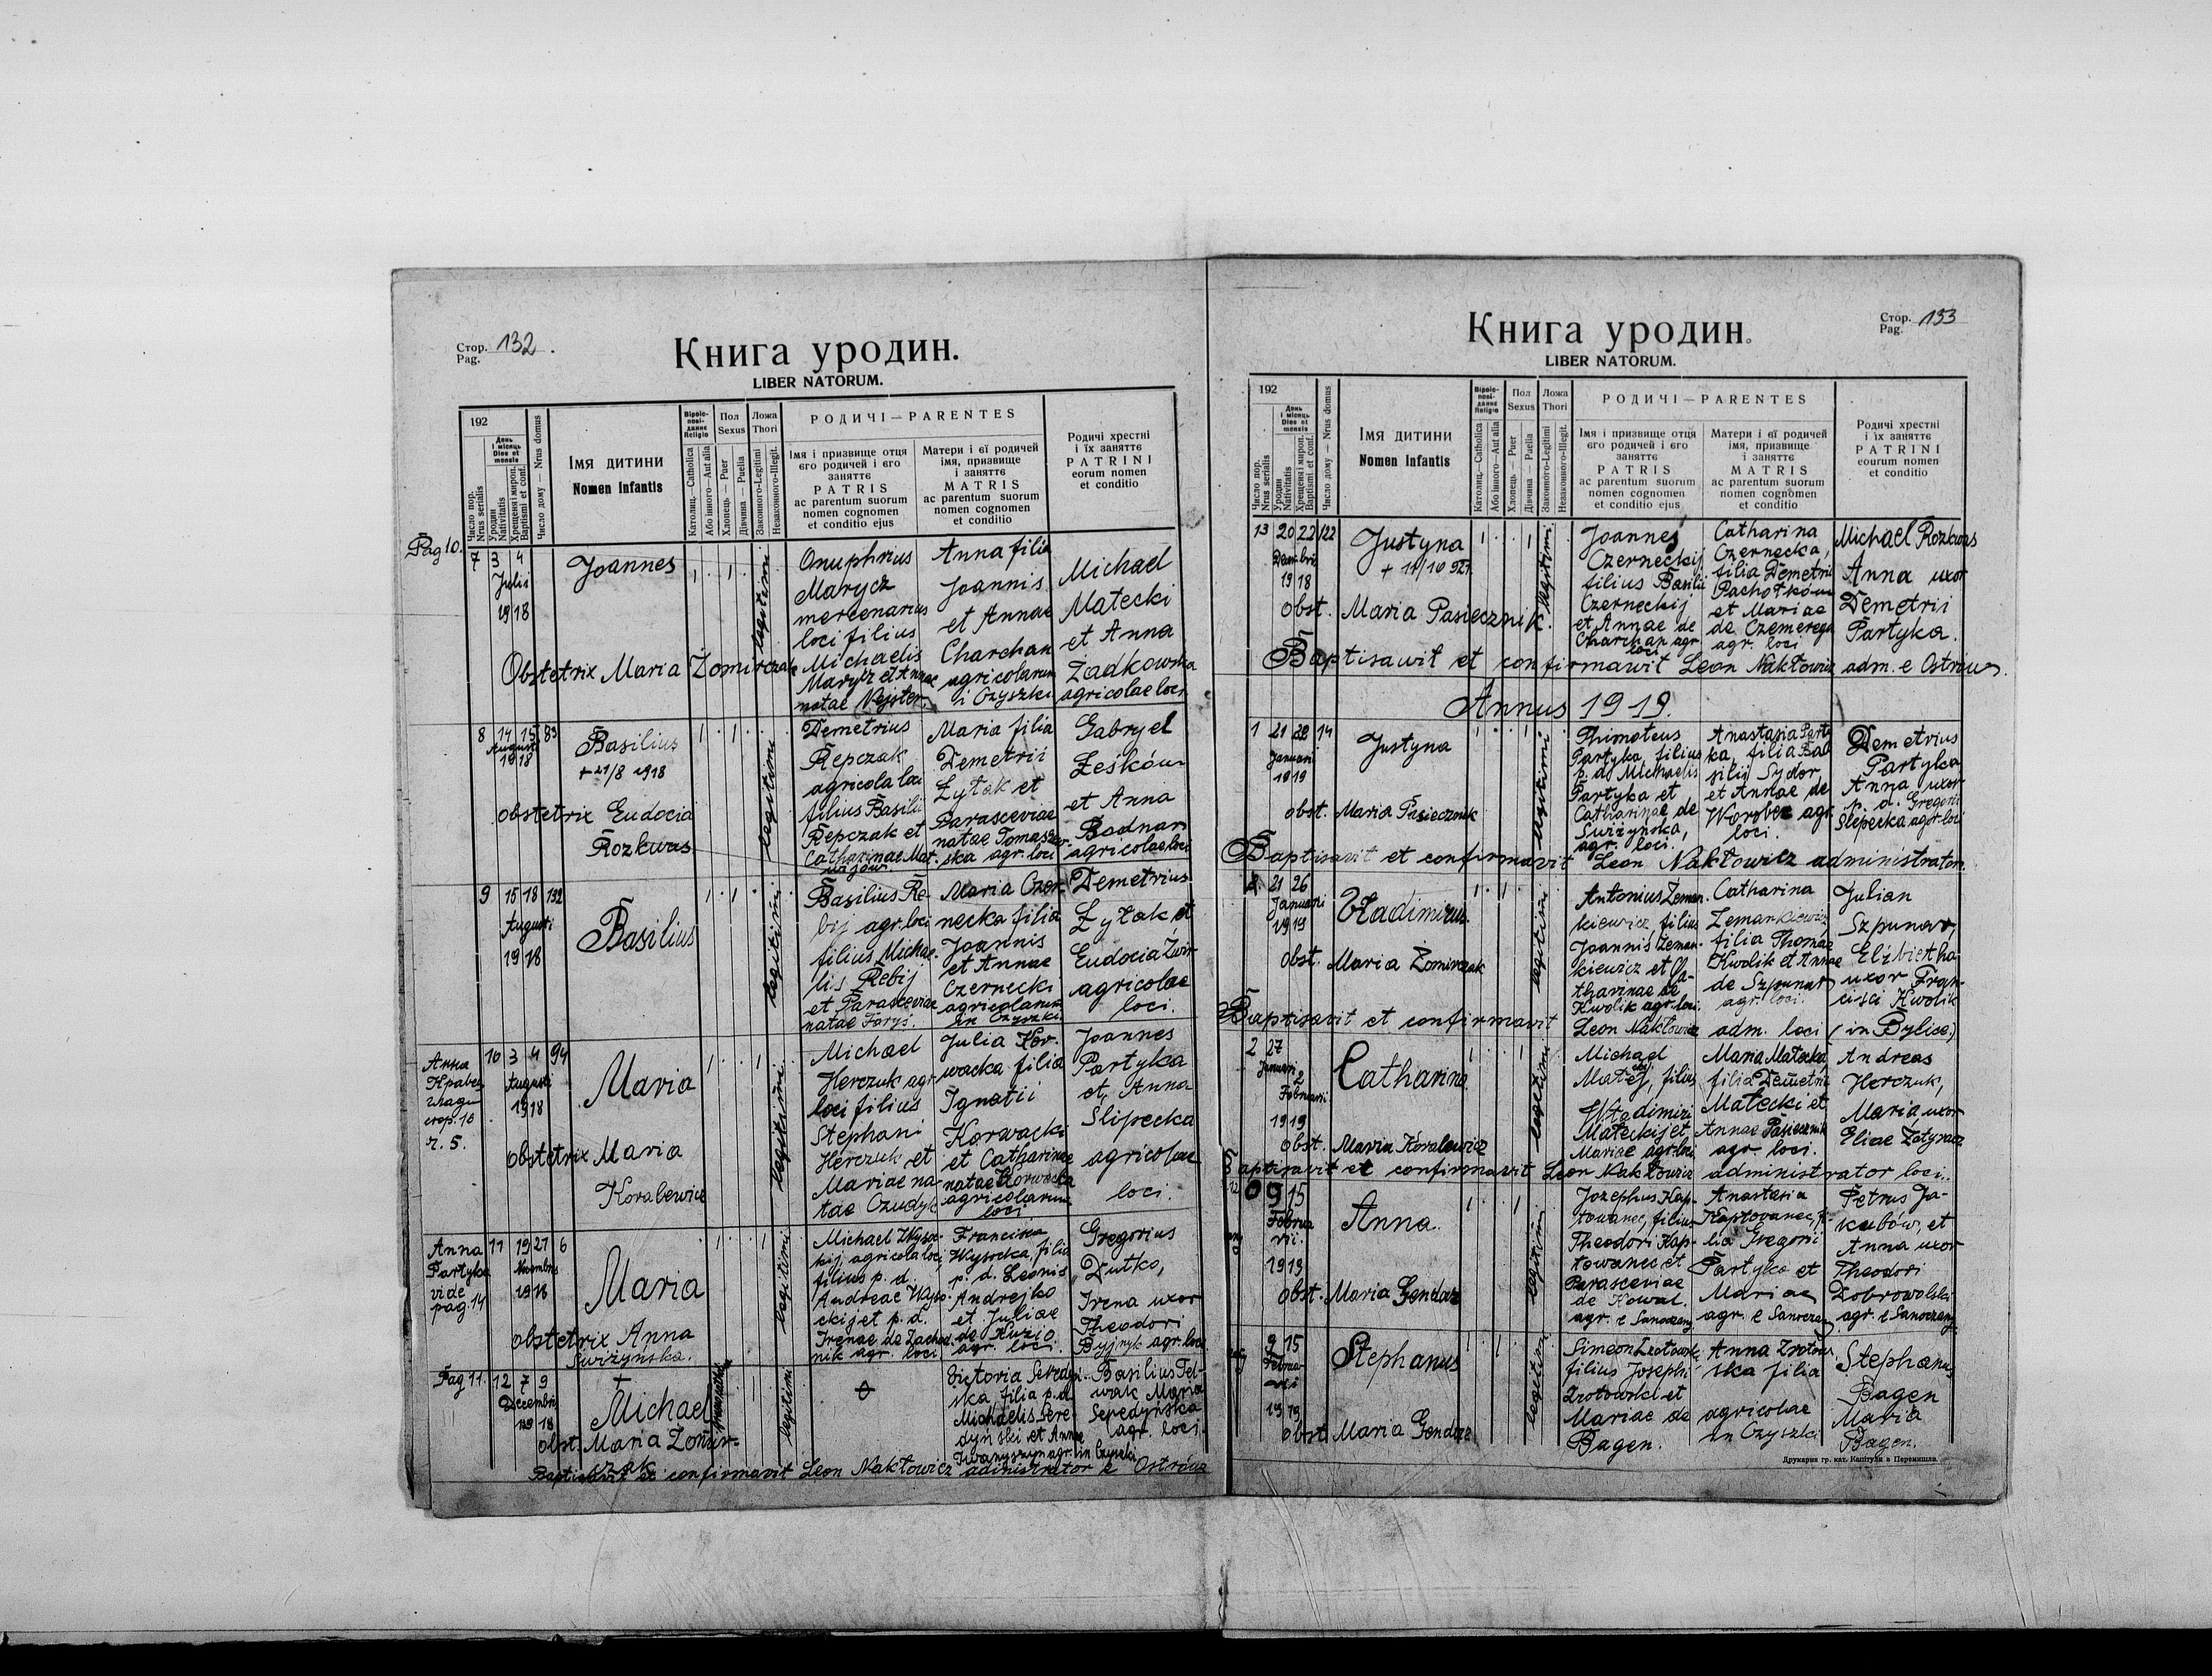 Стор. 132.
Pag.
Книга уродин.
LIBER NATORUM.
192
День і місяць
Dies et mensis
Число пор.
Nrus serialis
Уродин
Nativitatis
Хрещення і миропом.
Baptismi et conf.
Число дому — Nrus domus
Імя дитини
Nomen infantis
Віроісповідання
Religio
Католиц.—Catholica
Або інного—Aut alia
Пол
Sexus
Хлопець — Puer
Дівчина — Puella
Ложа
Thori
Законного-Legitimi
Незаконного-Illegit.
РОДИЧІ — PARENTES
Імя і призвище отця
єго родичей і єго
заняттє
PATRIS
ac parentum suorum
nomen cognomen
et conditio ejus
Матери і єї родичей
імя, призвище
і заняттє
MATRIS
ac parentum suorum
nomen cognomen
et conditio
Родичі хрестні
і їх заняттє
PATRINI
eorum nomen
et conditio
Pag 10.
7 3 4
Julii
1918
Joannes
legitimi
Onuphrius
Marycz
mercenarius
loci filius
Michaelis
Marycz et Annae
natae Nejster.
Anna filia
Joannis
et Annae
Charchan
agricolarum
i Czyszki
Michael
Matecki
et Anna
Zadkowska
agricolae loci
Obstetrix Maria Żomirczak
8 14 15 83
Augusti
1918
Basilius
+ 21/8 1918
legitimi
Demetrius
Repczak
agricola loci
filius Basilii
Repczak et
Catharinae Mat-
wijów.
Maria filia
Demetrii
Łytak et
Parasceviae
natae Tomaszew-
ska agr. loci
Gabryel
Leśków
et Anna
Bodnar
agricolae loci
obstetrix Eudocia
Rozkwas
9 15 18 132
Augusti
1918
Basilius
legitimi
Basilius Re-
bij agr. loci
filius Michae-
lis Rebij
et Parasceviae
natae Farys.
Maria Czer-
necka filia
Joannis
et Annae
Czernecki
agricolarum
in Czyszki
Demetrius
Łytak et
Eudocia
agricolae
loci.
Анна
стор. 10
ч. 5.
10 3 4 94
Augusti
1918
Maria
legitimi
Michael
Herczuk agr
loci filius
Stephani
Herczuk et
Mariae na-
tae Czudyk
Julia Kor-
wacka filia
Ignatii
Korwacki
et Catharinae
natae Korwacka
agricolarum
loci
Joannes
Partyka
et Anna
Slipecka
agricolae
loci.
obstetrix Maria
Koralewicz
Anna
Partyka
vide
pag. 14
11 19 21 6
Novembris
1918
Maria
legitimi
Michael Wyso-
kij, agricola loci,
filius p. d.
Andreae Wyso-
ckij et p. d.
Irenae de Zachod-
nik agr. loci
Francisca
Wysocka, filia
p. d. Leonis
Andrejko
et Juliae
de Kuzio
agr. loci.
Gregorius
Dutko,
Irena uxor
Theodori
Byjnyk agr. loci
obstetrix Anna
Świżyńska.
Pag 11.
12 7 9
Decembris
1918
+
Michael
legitimi
Victoria Seredyń-
ska, filia p. d.
Michaelis Sere-
dyński et Annae
Iwanyszyn agr. in Czyszki
Basilius Fet-
wak Maria
Seredyńska
agr. loci.
obst. Maria Żomir-
czak
Baptisavit et confirmavit Leon Nakłowicz administrator e Ostrów
Стор. 133
Pag.
Книга уродин.
LIBER NATORUM.
192
День і місяць
Dies et mensis
Число пор.
Nrus serialis
Уродин
Nativitatis
Хрещення і миропом.
Baptismi et conf.
Число дому — Nrus domus
Імя дитини
Nomen infantis
Віроісповідання
Religio
Католиц.—Catholica
Або інного—Aut alia
Пол
Sexus
Хлопець — Puer
Дівчина — Puella
Ложа
Thori
Законного-Legitimi
Незаконного-Illegit.
РОДИЧІ — PARENTES
Імя і призвище отця
єго родичей і єго
заняттє
PATRIS
ac parentum suorum
nomen cognomen
et conditio ejus
Матери і єї родичей
імя, призвище
і заняттє
MATRIS
ac parentum suorum
nomen cognomen
et conditio
Родичі хрестні
і їх заняттє
PATRINI
eorum nomen
et conditio
13 20 22 122
Decembris
1918
Justyna
+ 11/10 921.
legitimi
Joannes
Czerneckij
filius Basilii
Czerneckij
et Annae de
Charchan agr.
loci
Catharina
Czernecka,
filia Demetrii
Pachołków
et Mariae
de Czemeryga
agr. loci
Michael Rozkwas
Anna uxor
Demetrii
Partyka.
obst. Maria Pasiecznik.
Baptisavit et confirmavit Leon Nakłowicz adm. e Ostrów.
Annus 1919.
1 21 22 14
Januarii
1919
Justyna
legitimi
Thimoteus
Partyka, filius
p. d. Michaelis
Partyka et
Catharinae de
Świżyńska,
agr. loci.
Anastasia Party-
ka, filia Ba-
silii Sydor
et Annae de
Worobec agr.
loci.
Demetrius
Partyka
Anna uxor
p. d. Gregorii
Slepecka agr. loci
obst. Maria Pasiecznik
Baptisavit et confirmavit Leon Nakłowicz administrator.
2. 21 26
Januarii
1919
Vładimirus
legitimi
Antonius Zeman-
kiewicz, filius
Joannis Zeman-
kiewicz et Ca-
tharinae de
Kwolik agr. loci.
Catharina
Zemankiewicz,
filia Thomae
Kwolik et Annae
de Szpunar
agr. loci.
Julian
Szpunar,
Elżbietha
uxor Fran-
cisci Kwolik
(in Bylice)
obst. Maria Żomirczak
Baptisavit et confirmavit Leon Nakłowicz adm. loci
2 27
Januarii
2
Februarii
1919
Catharina
legitimi
Michael
Matecki, filius
Władimiri
Mateckij et
Mariae agr. loci
Maria Matecka,
filia Demetrii
Matecki et
Annae Pasiecznik
agr. loci.
Andreas
Herczuk,
Maria uxor
Eliae Zatynacz
obst. Maria Koralewicz
Baptisavit et confirmavit Leon Nakłowicz administrator loci.
9 15
Februa
rii.
1919
Anna.
legitimi
Josephus Kap-
towanec, filius
Theodori Kap-
towanec et
Parasceviae
de Kowal.
agr. e Sanoczany
Anastasia
Kaptowanec, fi-
lia Gregorii
Partyka et
Mariae
agr. e Sanoczany
Petrus Ja-
kubów, et
Anna uxor
Theodori
Dobrowolski
agr. e Sanoczany.
obst. Maria Gendza
9 15
Februa-
rii
1919
Stephanus
legitimi
Simeon Zrotowski
filius Josephi
Zrotowski et
Mariae de
Bagen.
Anna Zrotow-
ska filia
agricolae
in Czyszki
Stephanus
Bagen
Maria
Bagen.
obst Maria Gendza
Друкарня гр. кат. Капітули в Перемишли.